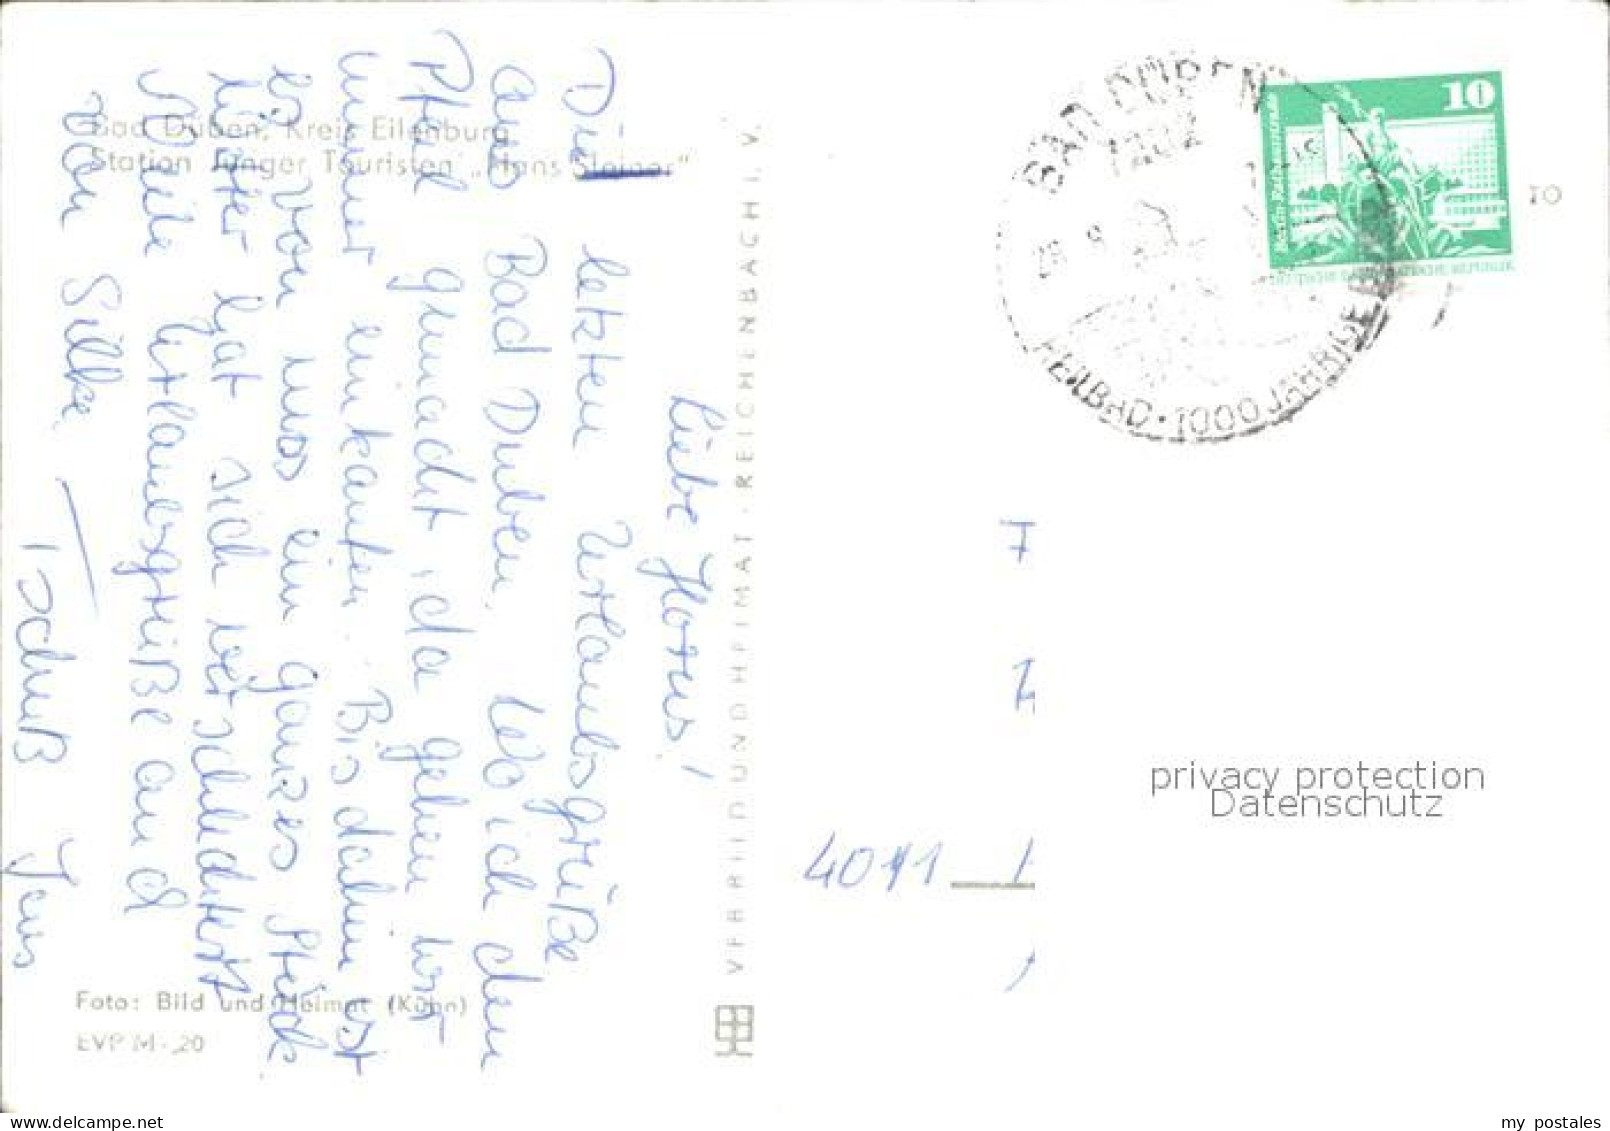 Bad Düben, Kreis Eilenburg
Station Junger Touristen „Hans Steiner"
Liebe Horns!
Die letzten Urlaubsgrüße
aus Bad Düben. Wo ich den
Pfeil gemacht, da gehen wir
immer einkaufen. Bis dahin ist
es von uns ein ganzes Stück.
hat sich verschlechtert
Viele Urlaubsgrüße an
von Silke
Tschüß Jens
Foto: Bild und Heimat (Kühn)
EVP M -,20
VERLAG BILD UND HEIMAT · REICHENBACH I. V.
BAD DÜBEN
7282
HEILBAD · 1000 JÄHRIGE
10
10
4011
privacy protection
Datenschutz
my postales